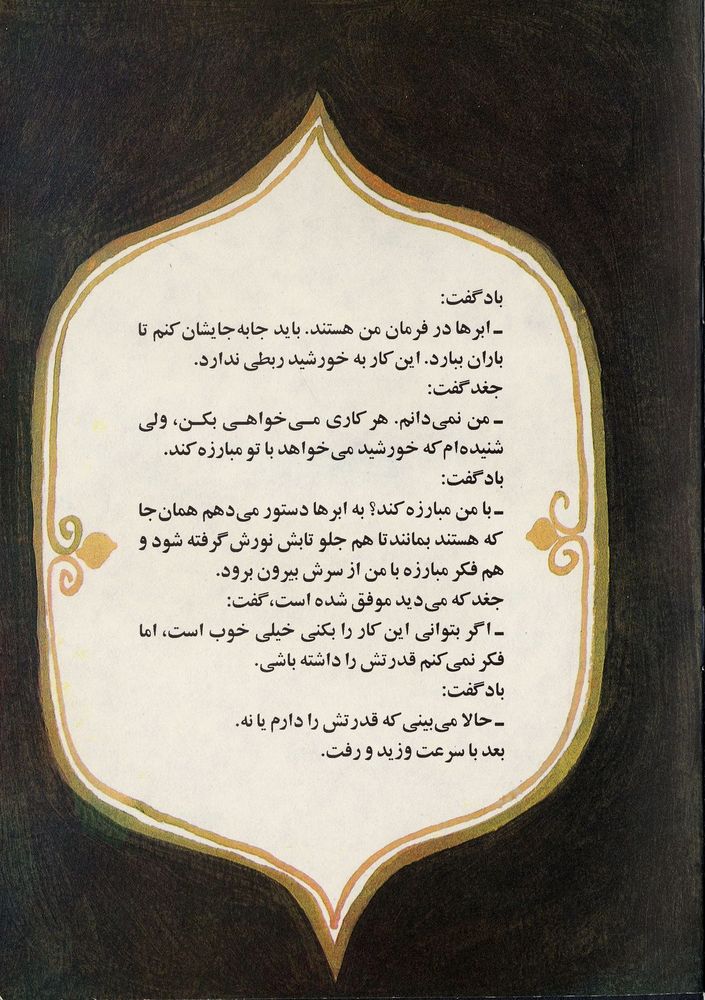 باد گفت:
ـ ابرها در فرمان من هستند. باید جابه‌جایشان کنم تا
باران ببارد. این کار به خورشید ربطی ندارد.
جغد گفت:
ـ من نمی‌دانم. هر کاری مـی‌خواهـی بکـن، ولی
شنیده‌ام که خورشید می‌خواهد با تو مبارزه کند.
باد گفت:
ـ با من مبارزه کند؟ به ابرها دستور می‌دهم همان‌جا
که هستند بمانند تا هم جلو تابش نورش گرفته شود و
هم فکر مبارزه با من از سرش بیرون برود.
جغد که می‌دید موفق شده است، گفت:
ـ اگر بتوانی این کار را بکنی خیلی خوب است، اما
فکر نمی‌کنم قدرتش را داشته باشی.
باد گفت:
ـ حالا می‌بینی که قدرتش را دارم یا نه.
بعد با سرعت وزید و رفت.